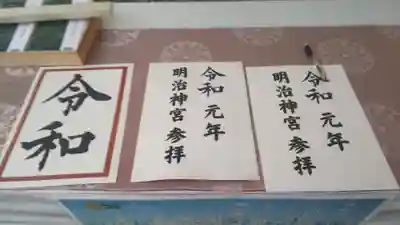 令和
令和 元年
明治神宮 参拝
令和 元年
明治神宮 参拝